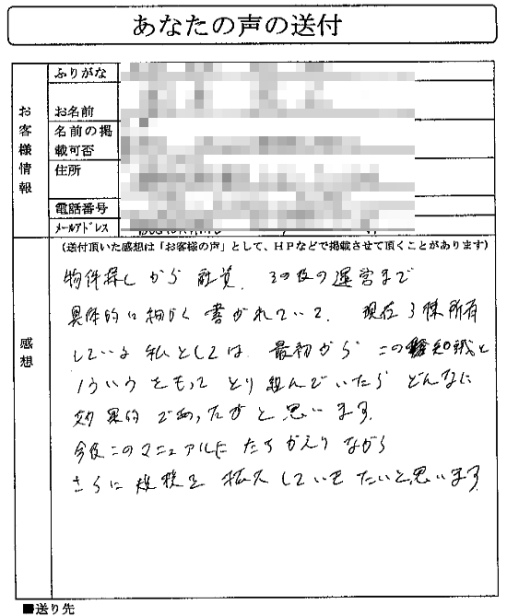 あなたの声の送付
お客様情報
ふりがな
お名前
名前の掲載可否
住所
電話番号
メールアドレス
(送付頂いた感想は「お客様の声」として、HPなどで掲載させて頂くことがあります)
感想
物件探しから 融資、その後の運営まで
具体的に細かく書かれていて、現在3棟所有
している私としては、最初から この知識と
をもって とり組んでいたら どんなに
効果的であったかと思います。
今後このマニュアルに たちかえりながら
さらに規模を拡大していきたいと思います
■送り先